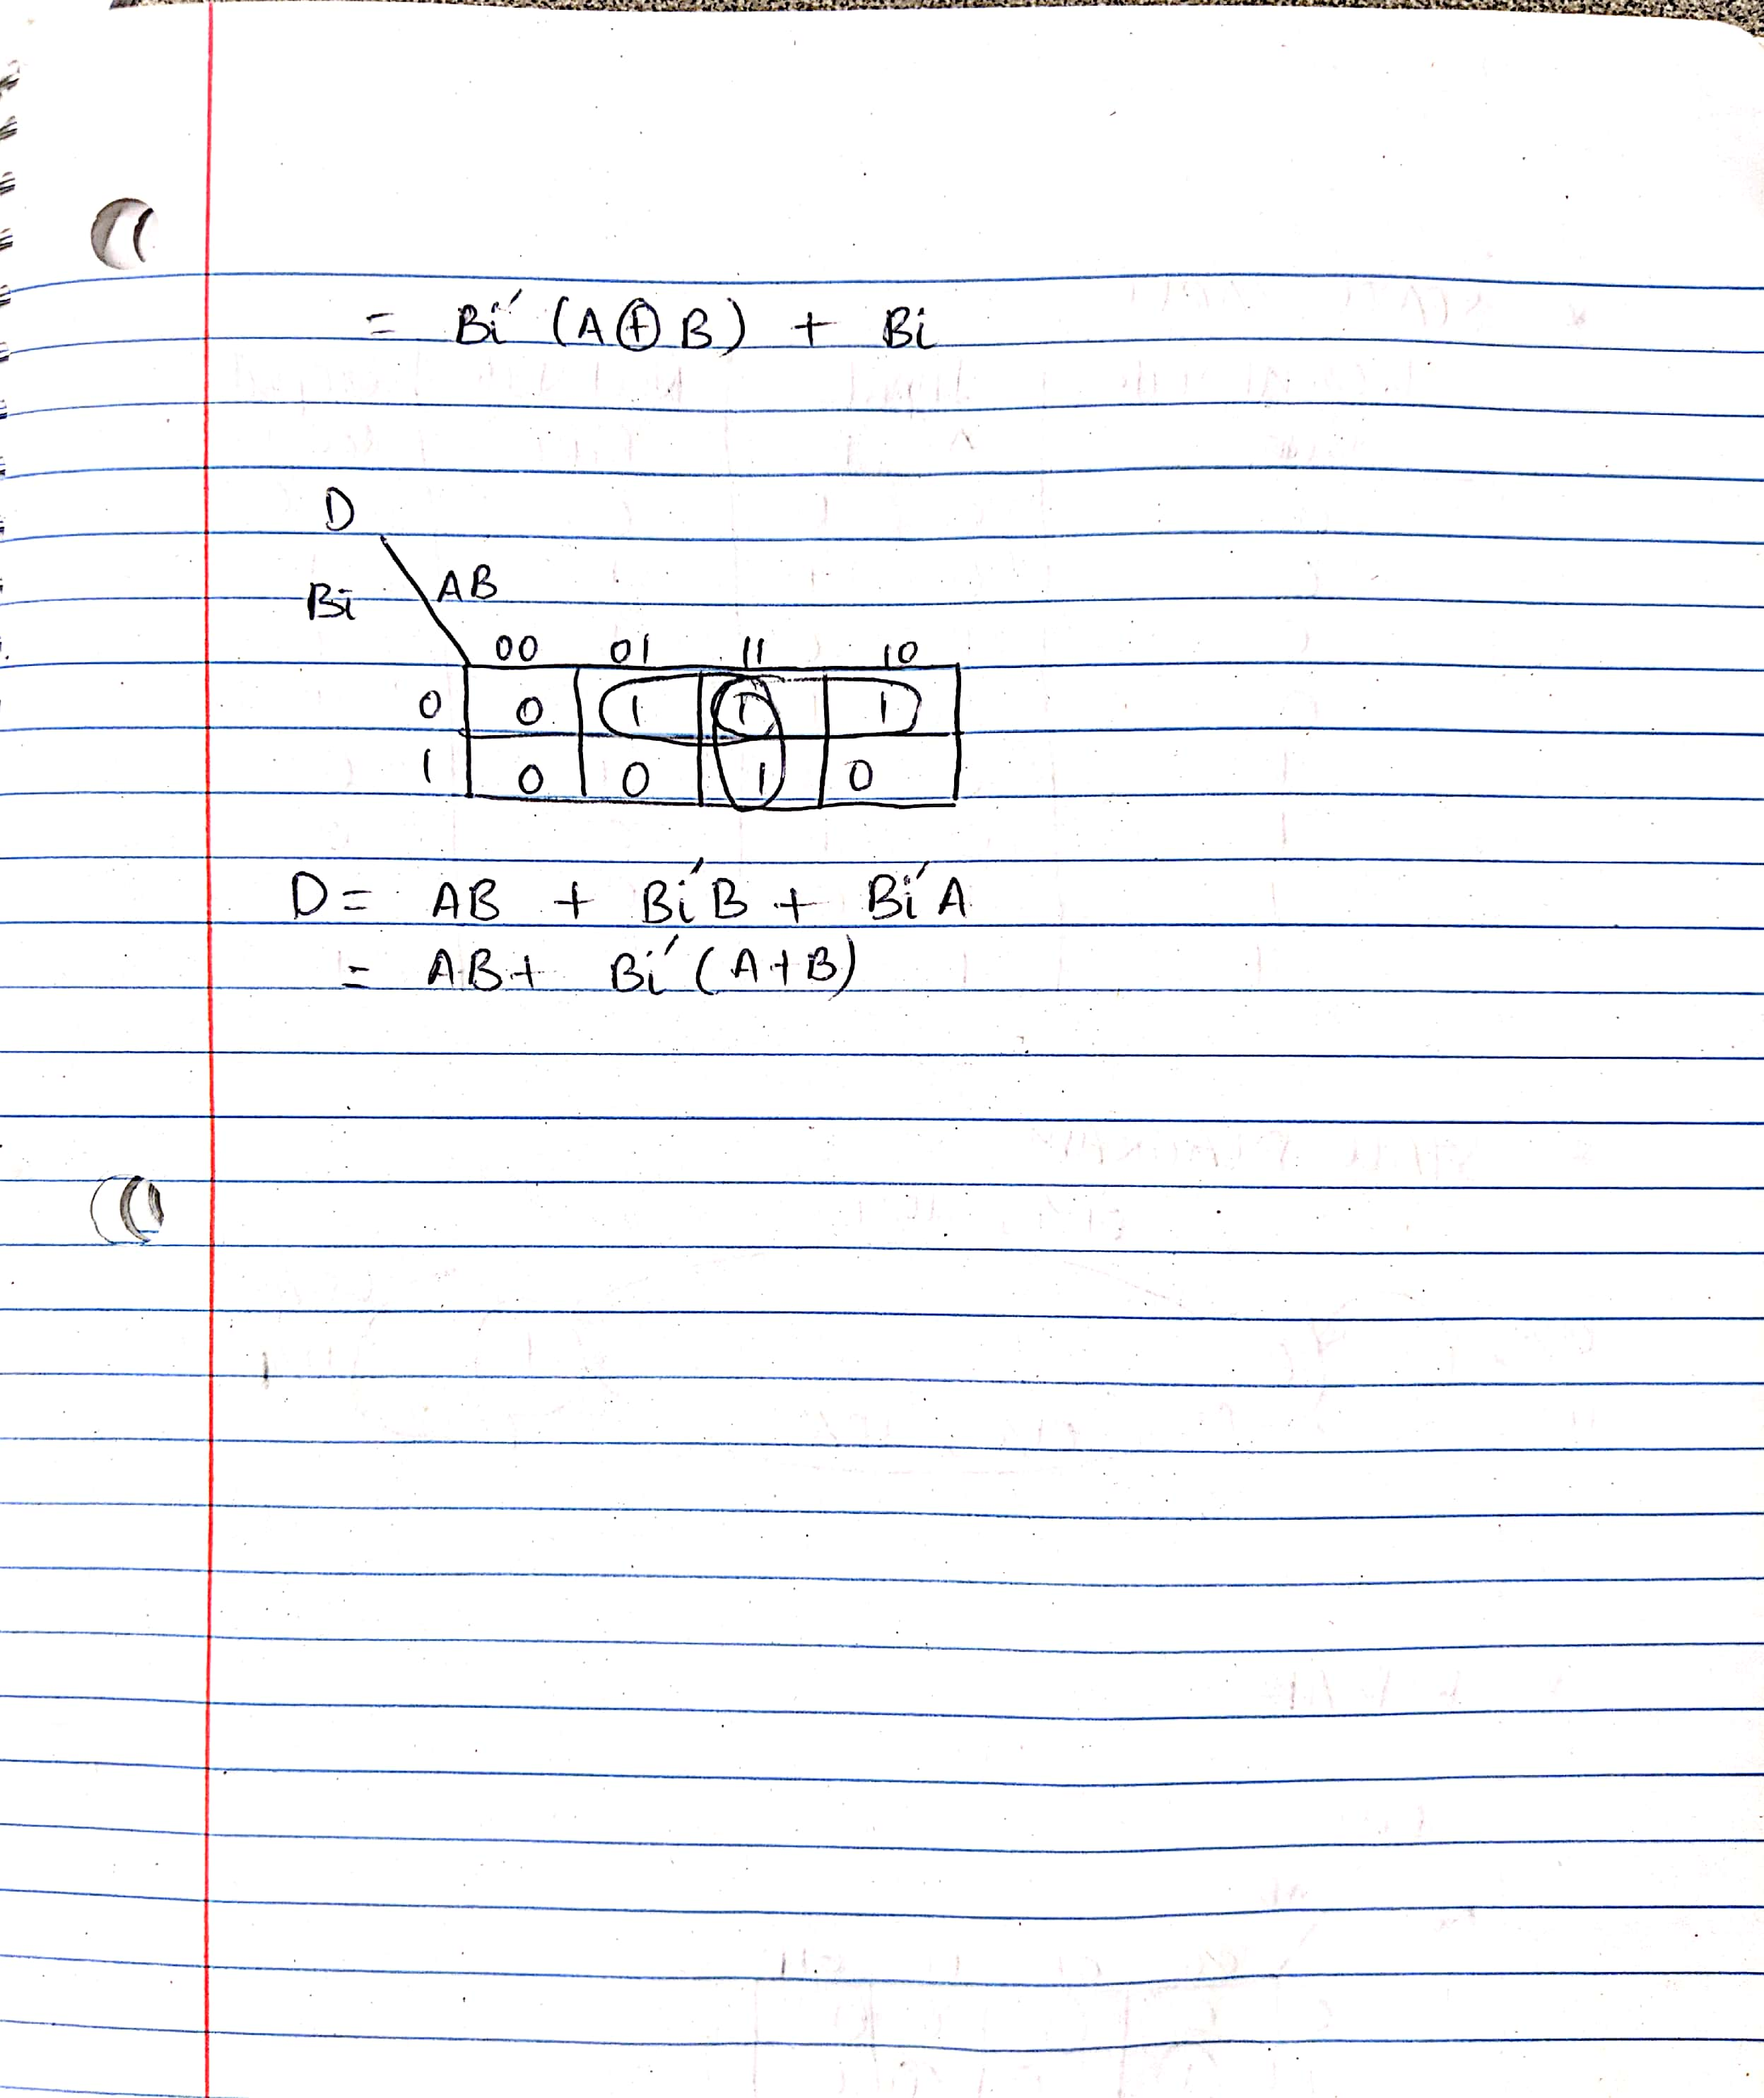 = Bi′ (A⊕B) + Bi
D
Bi AB
00 01 11 10
0 0 1 1 1
1 0 0 1 0
D = AB + Bi′B + Bi′A
= AB + Bi′(A+B)